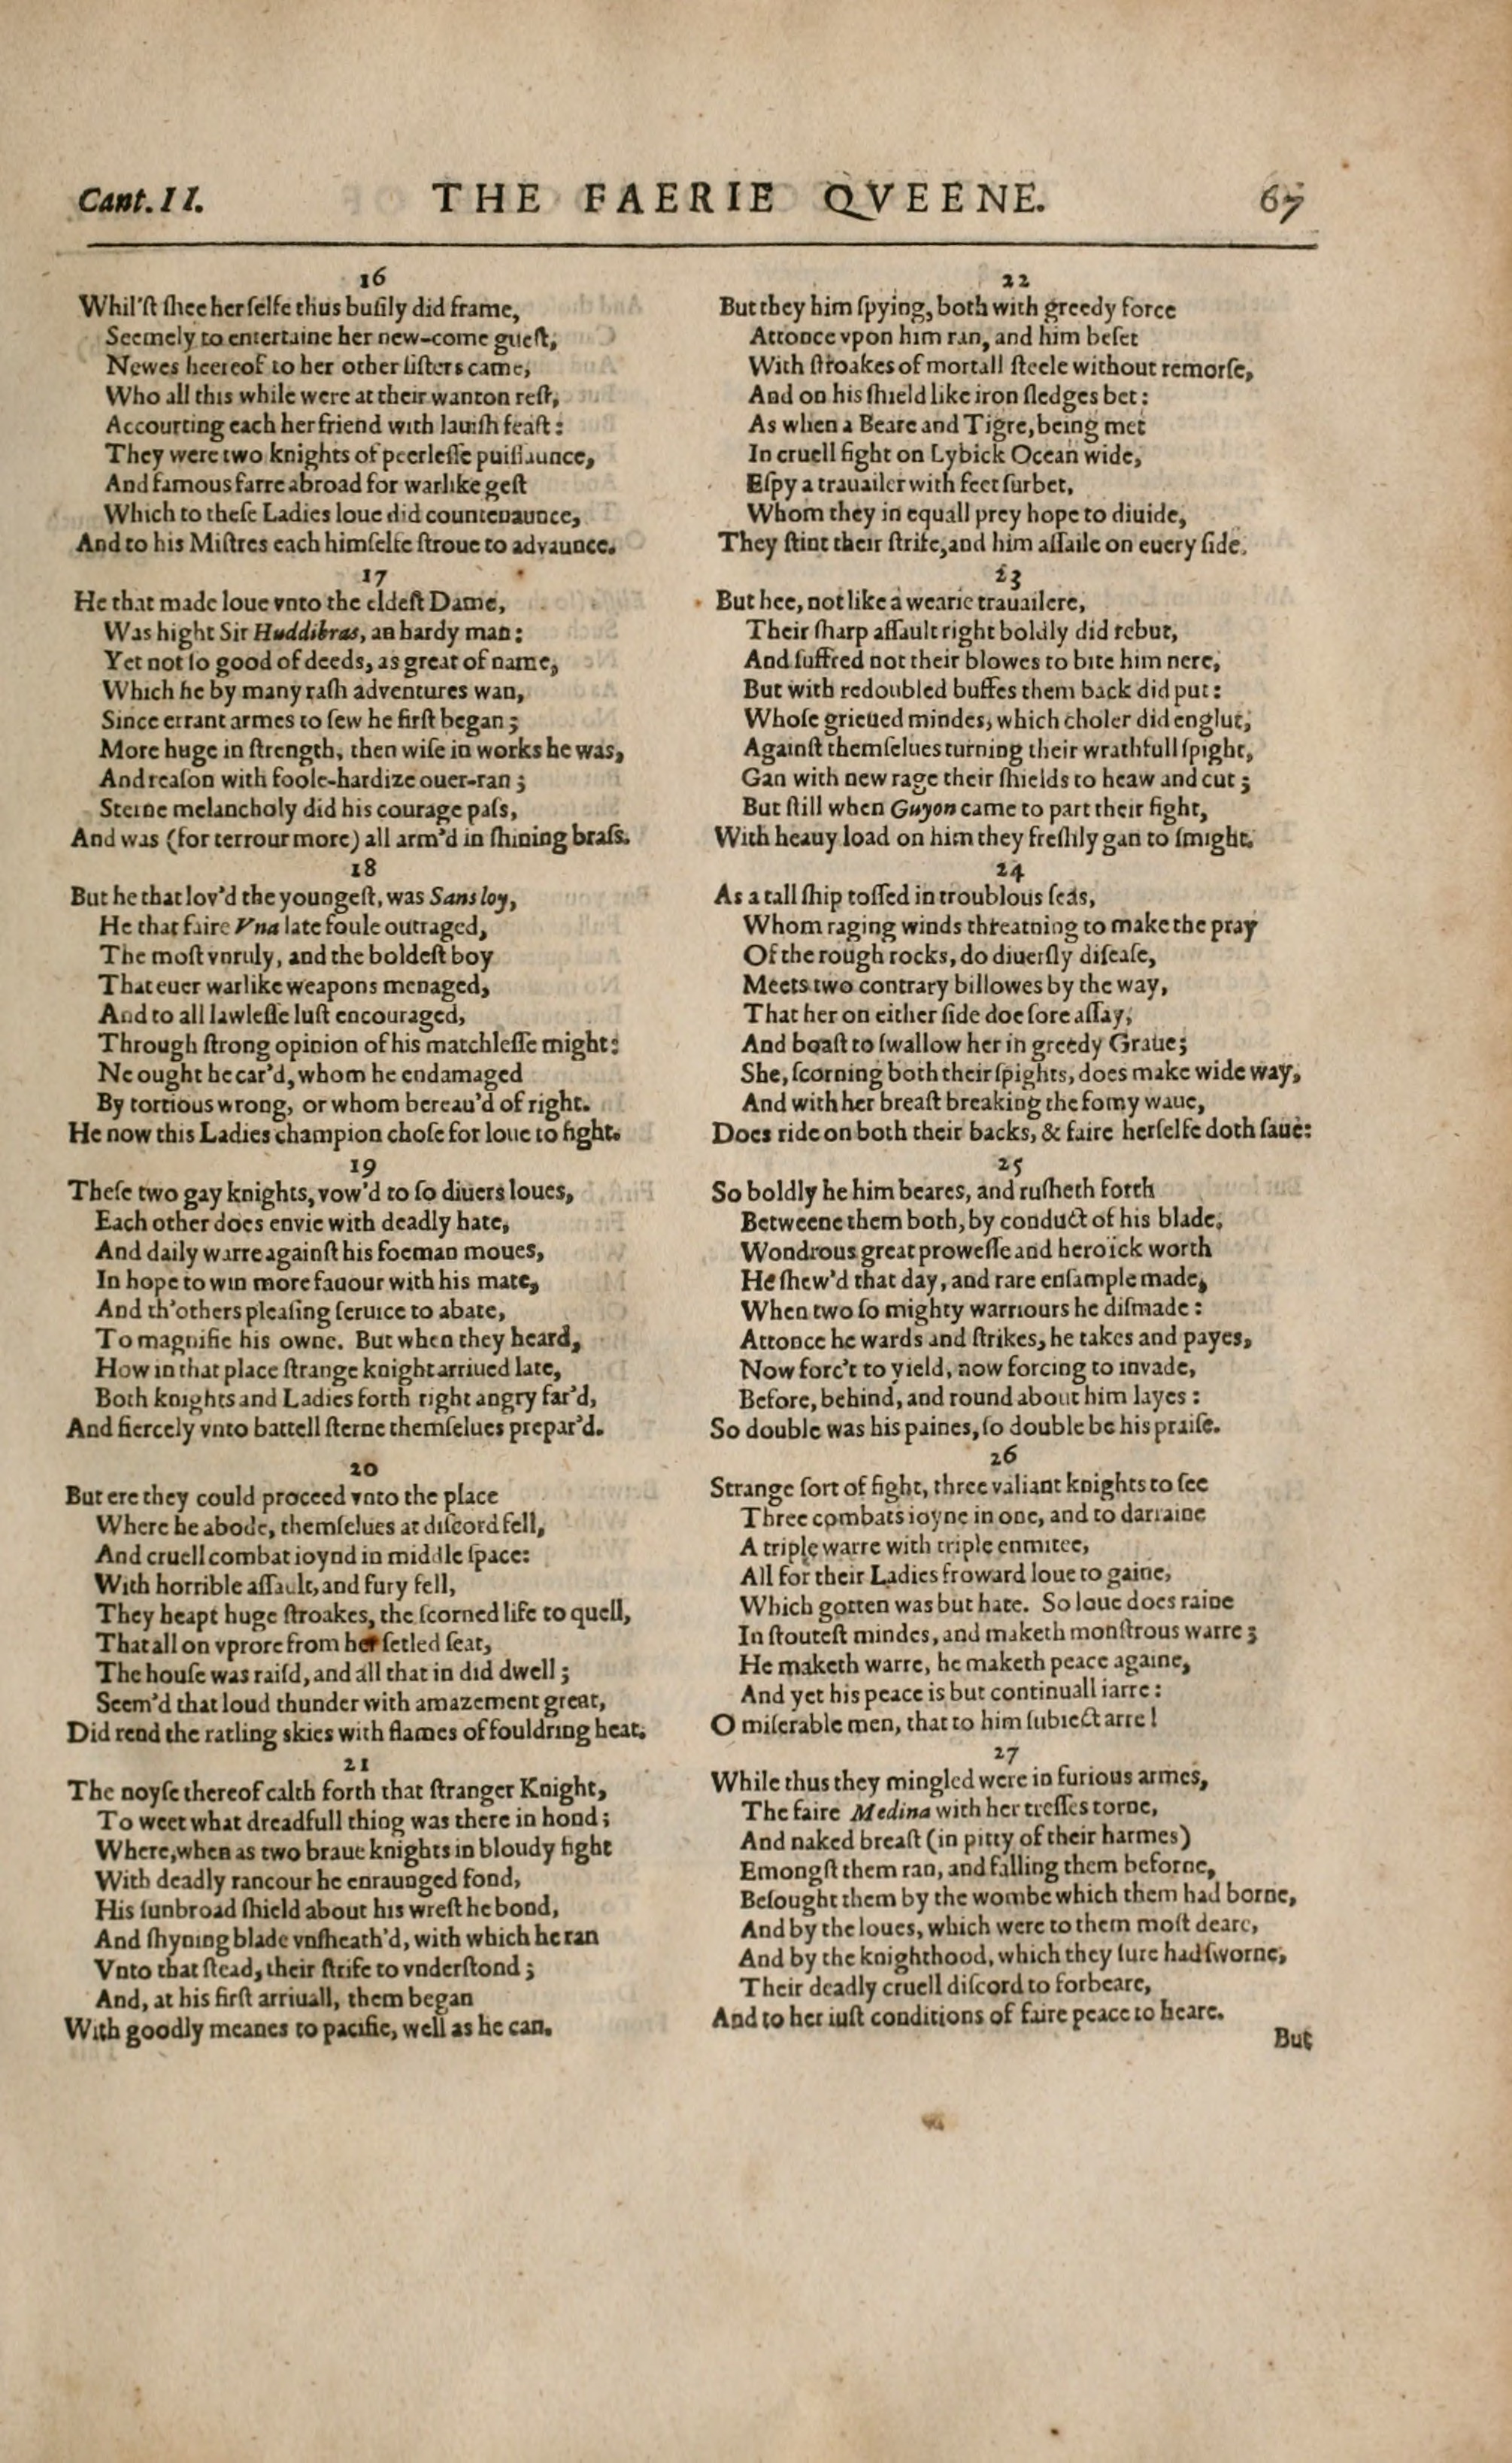 Cant. II.
THE FAERIE QVEENE.
67
16
Whil'ſt ſhee her ſelfe thus buſily did frame,
Seemely to entertaine her new-come gueſt,
Newes heereof to her other ſiſters came,
Who all this while were at their wanton reſt,
Accourting each her friend with lauiſh feaſt:
They were two knights of peerleſſe puiſſaunce,
And famous farre abroad for warlike geſt
Which to theſe Ladies loue did countenaunce,
And to his Miſtres each himſelfe ſtroue to advaunce.
17
He that made loue vnto the eldeſt Dame,
Was hight Sir Huddibras, an hardy man:
Yet not ſo good of deeds, as great of name,
Which he by many raſh adventures wan,
Since errant armes to ſew he firſt began;
More huge in ſtrength, then wiſe in works he was,
And reaſon with foole-hardize ouer-ran;
Sterne melancholy did his courage paſs,
And was (for terrour more) all arm'd in ſhining braſs.
18
But he that lov'd the youngeſt, was Sansloy,
He that faire Vna late foule outraged,
The moſt vnruly, and the boldeſt boy
That euer warlike weapons menaged,
And to all lawleſſe luſt encouraged,
Through ſtrong opinion of his matchleſſe might:
Ne ought he car'd, whom he endamaged
By tortious wrong, or whom bereau'd of right.
He now this Ladies champion choſe for loue to fight.
19
Theſe two gay knights, vow'd to ſo diuers loues,
Each other does envie with deadly hate,
And daily warre againſt his foeman moues,
In hope to win more fauour with his mate,
And th'others pleaſing ſeruice to abate,
To magnifie his owne. But when they heard,
How in that place ſtrange knight arriued late,
Both knights and Ladies forth right angry far'd,
And fiercely vnto battell ſterne themſelues prepar'd.
20
But ere they could proceed vnto the place
Where he abode, themſelues at diſcord fell,
And cruell combat ioynd in middle ſpace:
With horrible aſſault, and fury fell,
They heapt huge ſtroakes, the ſcorned life to quell,
That all on vprore from her ſetled ſeat,
The houſe was raiſd, and all that in did dwell;
Seem'd that loud thunder with amazement great,
Did rend the ratling skies with flames of fouldring heat.
21
The noyſe thereof calth forth that ſtranger Knight,
To weet what dreadfull thing was there in hond;
Where, when as two braue knights in bloudy fight
With deadly rancour he enraunged fond,
His ſunbroad ſhield about his wreſt he bond,
And ſhyning blade vnſheath'd, with which he ran
Vnto that ſtead, their ſtrife to vnderſtond;
And, at his firſt arriuall, them began
With goodly meanes to pacifie, well as he can.
22
But they him ſpying, both with greedy force
Attonce vpon him ran, and him beſet
With ſtroakes of mortall ſteele without remorſe,
And on his ſhield like iron ſledges bet:
As when a Beare and Tigre, being met
In cruell fight on Lybick Ocean wide,
Eſpy a trauailer with feet ſurbet,
Whom they in equall prey hope to diuide,
They ſtint their ſtrife, and him aſſaile on euery ſide.
23
But hee, not like a wearie trauailere,
Their ſharp aſſault right boldly did rebut,
And ſuffred not their blowes to bite him nere,
But with redoubled buffes them back did put:
Whoſe grieued mindes, which choler did englut,
Againſt themſelues turning their wrathfull ſpight,
Gan with new rage their ſhields to heaw and cut;
But ſtill when Guyon came to part their fight,
With heauy load on him they freſhly gan to ſmight.
24
As a tall ſhip toſſed in troublous ſeas,
Whom raging winds threatning to make the pray
Of the rough rocks, do diuerſly diſeaſe,
Meets two contrary billowes by the way,
That her on either ſide doe ſore aſſay,
And boaſt to ſwallow her in greedy Graue;
She, ſcorning both their ſpights, does make wide way,
And with her breaſt breaking the fomy waue,
Does ride on both their backs, & faire herſelfe doth ſaue:
25
So boldly he him beares, and ruſheth forth
Betweene them both, by conduct of his blade,
Wondrous great proweſſe and heroick worth
He ſhew'd that day, and rare enſample made,
When two ſo mighty warriours he diſmade:
Attonce he wards and ſtrikes, he takes and payes,
Now forc't to yield, now forcing to invade,
Before, behind, and round about him layes:
So double was his paines, ſo double be his praiſe.
26
Strange ſort of fight, three valiant knights to ſee
Three combats ioyne in one, and to darraine
A triple warre with triple enmitee,
All for their Ladies froward loue to gaine,
Which gotten was but hate. So loue does raine
In ſtouteſt mindes, and maketh monſtrous warre;
He maketh warre, he maketh peace againe,
And yet his peace is but continuall iarre:
O miſerable men, that to him ſubiect arre!
27
While thus they mingled were in furious armes,
The faire Medina with her treſſes torne,
And naked breaſt (in pitty of their harmes)
Emongſt them ran, and falling them beforne,
Beſought them by the wombe which them had borne,
And by the loues, which were to them moſt deare,
And by the knighthood, which they ſure had ſworne,
Their deadly cruell diſcord to forbeare,
And to her iuſt conditions of faire peace to heare.
But